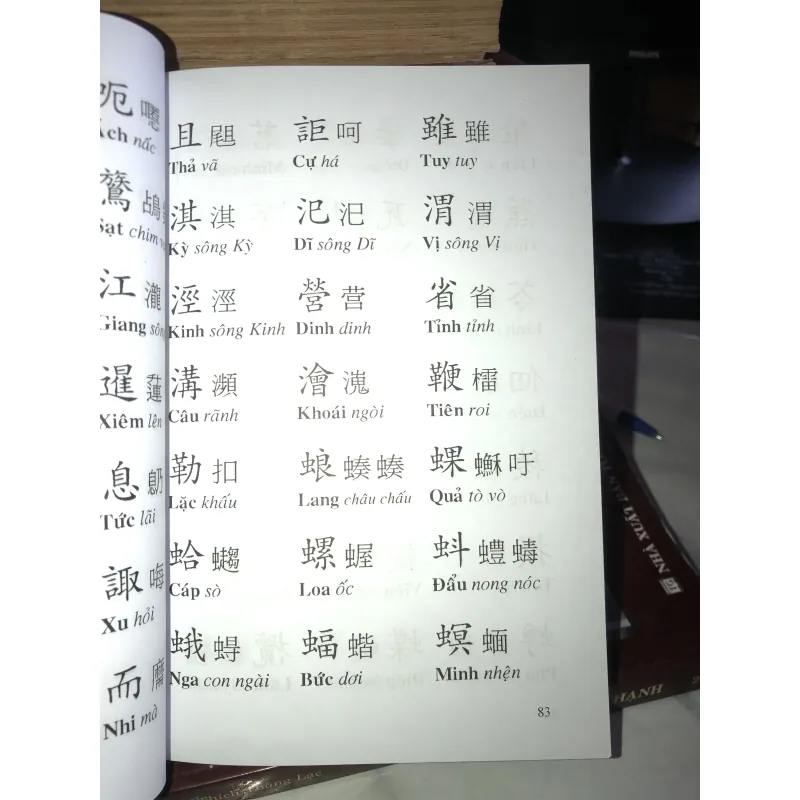 呃 𡃊
Ách nấc
且
Thả vã
詎 呵
Cự há
雖 雖
Tuy tuy
Sạt chim
淇 淇
Kỳ sông Kỳ
汜 汜
Dĩ sông Dĩ
渭 渭
Vị sông Vị
江 瀧
Giang sông
涇 涇
Kinh sông Kinh
營 营
Dinh dinh
省 省
Tỉnh tỉnh
暹 蓮
Xiêm lên
溝 瀕
Câu rãnh
澮 溾
Khoái ngòi
鞭 檑
Tiên roi
息
Tức lãi
勒 扣
Lặc khấu
蜋
Lang châu chấu
蜾 蘇 吁
Quả tò vò
諏 嗨
Xu hỏi
蛤
Cáp sò
螺 蝹
Loa ốc
蚪
Đẩu nong nóc
而 麻
Nhi mà
蛾 蚮
Nga con ngài
蝠 蝔
Bức dơi
螟 蝒
Minh nhện
83
NHÀ XUẤT BẢN
HẠNH
PHILIPS